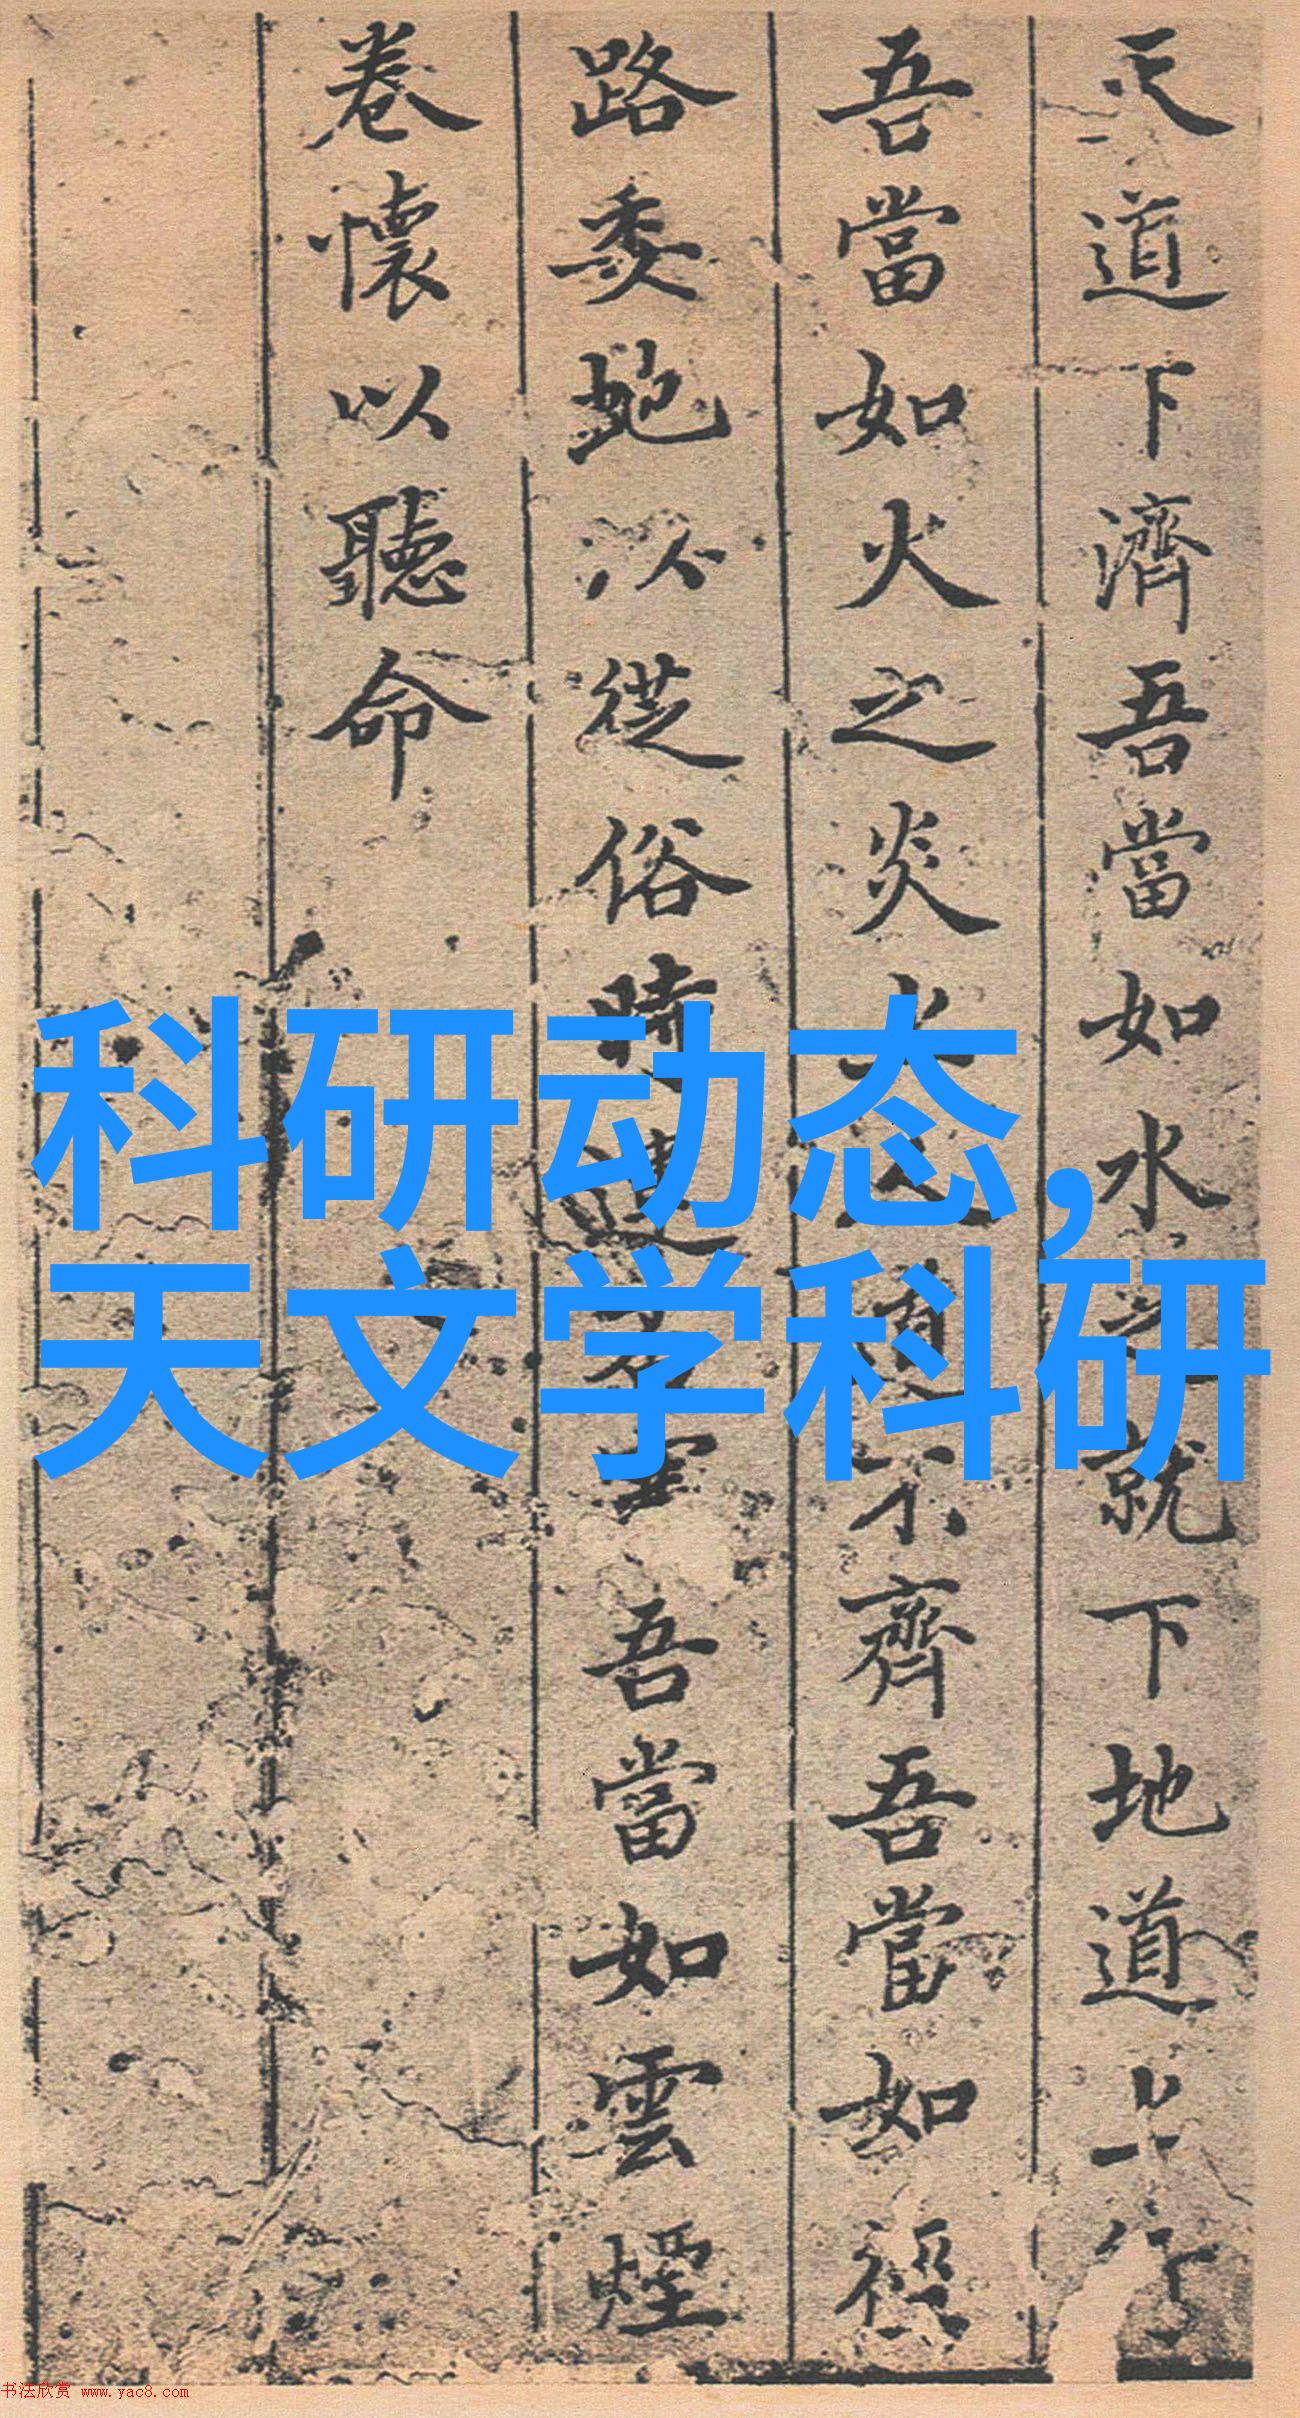 天道下濟吾當如水之就下地道上行
吾當如火之炎火不齊吾當如徑
路委蛇以從俗時吾當如雲煙
卷懷以聽命
科研动态，
天文学科研
书法欣赏 www.yac8.com